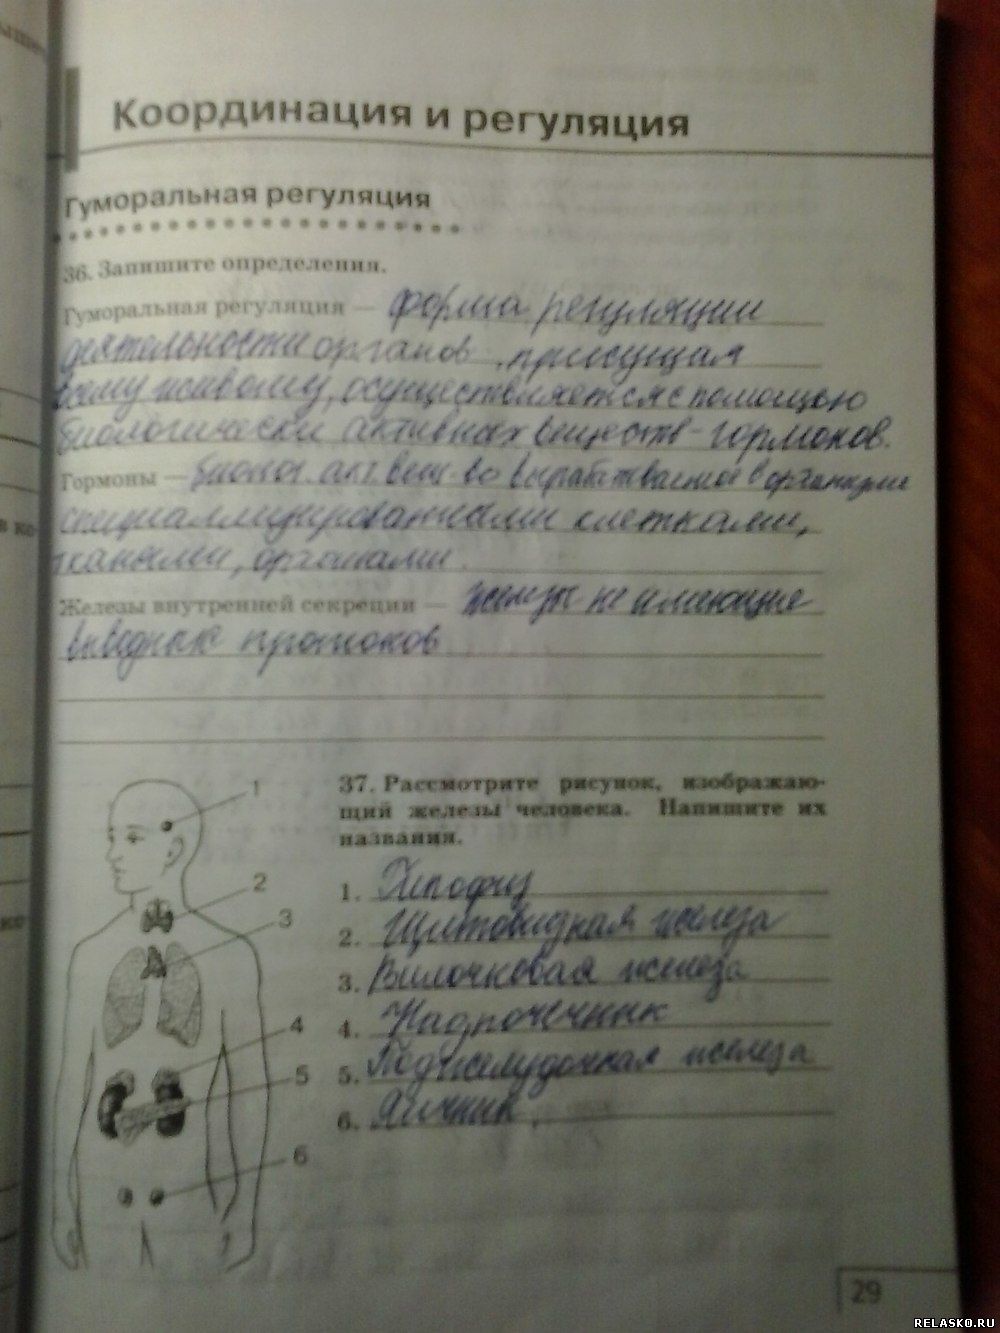 Координация и регуляция
Гуморальная регуляция
36. Запишите определения.
Гуморальная регуляция — форма регуляции
деятельности органов, присущая
всему живому, осуществляется с помощью
биологически активных веществ - гормонов.
Гормоны — биолог. акт. вещ-во вырабатываемое в организме
специаллизированными клетками,
тканями, органами.
Железы внутренней секреции — железы не имеющие
выводных протоков
37. Рассмотрите рисунок, изображаю-
щий железы человека. Напишите их
названия.
1
2
3
4
5
6
1. Гипофиз
2. Щитовидная железа
3. Вилочковая железа
4. Надпочечник
5. Поджелудочная железа
6. Яичник.
29
RELASKO.RU